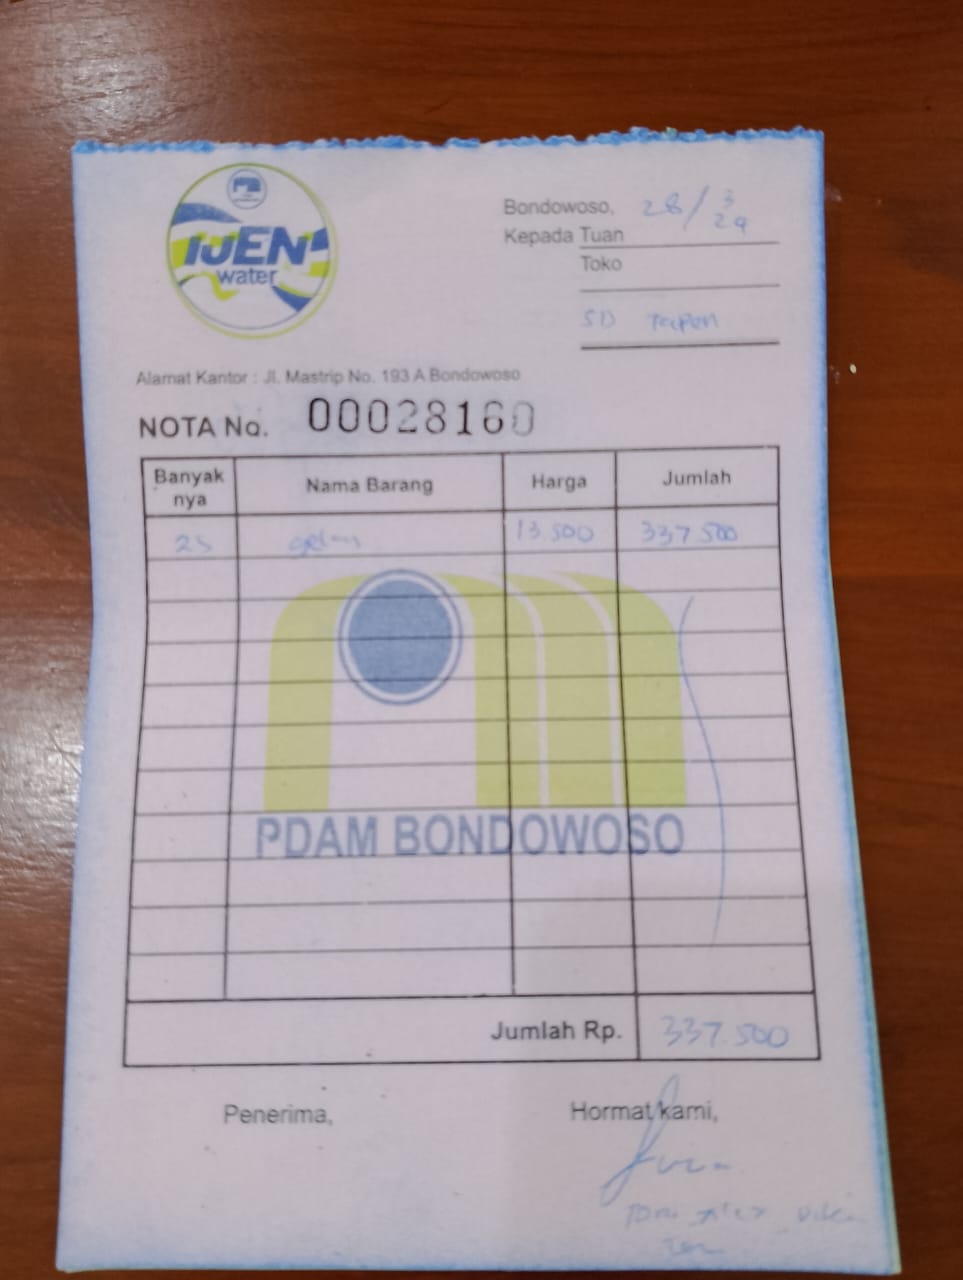 IJEN
water
Bondowoso, 28/3
24
Kepada Tuan
Toko
SD Tapen
Alamat Kantor : Jl. Mastrip No. 193 A Bondowoso
NOTA No. 00028160
Banyak nya Nama Barang Harga Jumlah
25 13.500 337.500
PDAM BONDOWOSO
Jumlah Rp. 337.500
Penerima, Hormat kami,